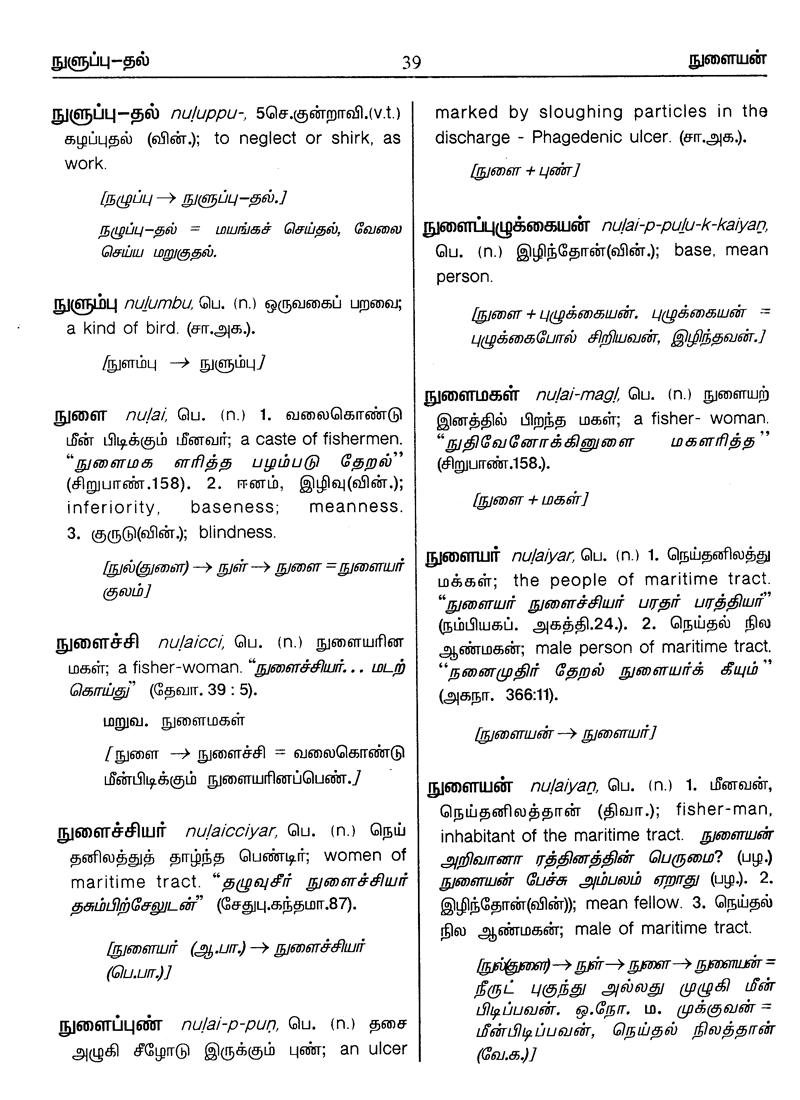 நுளுப்பு–தல்
39
நுளையன்
நுளுப்பு–தல் nuḷuppu-, 5செ.குன்றாவி.(v.t.)
கழப்புதல் (வின்.); to neglect or shirk, as
work.
[நழுப்பு → நுளுப்பு–தல்.]
நழுப்பு–தல் = மயங்கச் செய்தல், வேலை
செய்ய மறுகுதல்.
நுளும்பு nuḷumbu, பெ. (n.) ஒருவகைப் பறவை;
a kind of bird. (சா.அக.).
[நுளம்பு → நுளும்பு]
நுளை nuḷai, பெ. (n.) 1. வலைகொண்டு
மீன் பிடிக்கும் மீனவர்; a caste of fishermen.
“நுளைமக ளரித்த பழம்படு தேறல்”
(சிறுபாண்.158). 2. ஈனம், இழிவு(வின்.);
inferiority, baseness; meanness.
3. குருடு(வின்.); blindness.
[நுல்(துளை) → நுள் → நுளை = நுளையர்
குலம்]
நுளைச்சி nuḷaicci, பெ. (n.) நுளையரின
மகள்; a fisher-woman. “நுளைச்சியர்... மடற்
கொய்து” (தேவா. 39 : 5).
மறுவ. நுளைமகள்
[நுளை → நுளைச்சி = வலைகொண்டு
மீன்பிடிக்கும் நுளையரினப்பெண்.]
நுளைச்சியர் nuḷaicciyar, பெ. (n.) நெய்
தனிலத்துத் தாழ்ந்த பெண்டிர்; women of
maritime tract. “தழுவுசீர் நுளைச்சியர்
தசும்பிற்சேலுடன்” (சேதுபு.கந்தமா.87).
[நுளையர் (ஆ.பா.) → நுளைச்சியர்
(பெ.பா.)]
நுளைப்புண் nuḷai-p-puṇ, பெ. (n.) தசை
அழுகி சீழோடு இருக்கும் புண்; an ulcer
marked by sloughing particles in the
discharge - Phagedenic ulcer. (சா.அக.).
[நுளை + புண்]
நுளைப்புழுக்கையன் nuḷai-p-puḻu-k-kaiyaṉ,
பெ. (n.) இழிந்தோன்(வின்.); base, mean
person.
[நுளை + புழுக்கையன். புழுக்கையன் =
புழுக்கைபோல் சிறியவன், இழிந்தவன்.]
நுளைமகள் nuḷai-magḷ, பெ. (n.) நுளையற்
இனத்தில் பிறந்த மகள்; a fisher- woman.
“நுதிவேனோக்கினுளை மகளரித்த”
(சிறுபாண்.158.).
[நுளை + மகள்]
நுளையர் nuḷaiyar, பெ. (n.) 1. நெய்தனிலத்து
மக்கள்; the people of maritime tract.
“நுளையர் நுளைச்சியர் பரதர் பரத்தியர்”
(நம்பியகப். அகத்தி.24.). 2. நெய்தல் நில
ஆண்மகன்; male person of maritime tract.
“நனைமுதிர் தேறல் நுளையர்க் கீயும்”
(அகநா. 366:11).
[நுளையன் → நுளையர்]
நுளையன் nuḷaiyaṉ, பெ. (n.) 1. மீனவன்,
நெய்தனிலத்தான் (திவா.); fisher-man,
inhabitant of the maritime tract. நுளையன்
அறிவானா ரத்தினத்தின் பெருமை? (பழ.)
நுளையன் பேச்சு அம்பலம் ஏறாது (பழ.). 2.
இழிந்தோன்(வின்)); mean fellow. 3. நெய்தல்
நில ஆண்மகன்; male of maritime tract.
[நுல்(துளை) → நுள் → நுளை → நுளையன் =
நீருட் புகுந்து அல்லது முழுகி மீன்
பிடிப்பவன். ஒ.நோ. ம. முக்குவன் =
மீன்பிடிப்பவன், நெய்தல் நிலத்தான்
(வே.க.)]